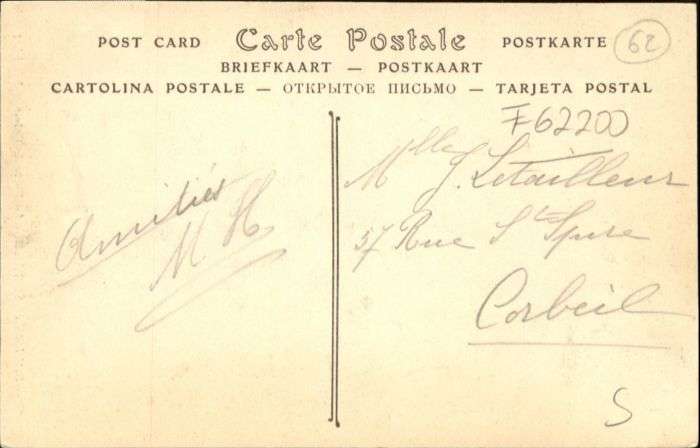 POST CARD Carte Postale POSTKARTE
62
BRIEFKAART — POSTKAART
CARTOLINA POSTALE — ОТКРЫТОЕ ПИСЬМО — TARJETA POSTAL
F62200
Amitiés
M H
Mlle J. Letailleur
37 Rue St Spire
Corbeil
S